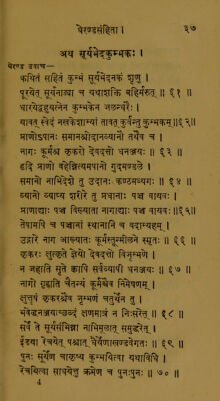 घेरण्डसंहिता। ३७
अथ सूर्यभेदकुम्भकः।
घेरण्ड उवाच—
कथितं सहितं कुम्भं सूर्यभेदनकं शृणु।
पूरयेत् सूर्यनाड्या च यथाशक्ति बहिर्मरुत् ॥ ६१ ॥
धारयेद्बहुयत्नेन कुम्भकेन जलन्धरैः।
यावत् स्वेदं नखकेशाभ्यां तावत् कुर्वन्तु कुम्भकम् ॥ ६२ ॥
प्राणोऽपानः समानश्चोदानव्यानौ तथैव च।
नागः कूर्मश्च कृकरो देवदत्तो धनञ्जयः ॥ ६३ ॥
हृदि प्राणो वहेन्नित्यमपानो गुदमण्डले।
समानो नाभिदेशे तु उदानः कण्ठमध्यगः ॥ ६४ ॥
व्यानो व्याप्य शरीरे तु प्रधानाः पञ्च वायवः।
प्राणाद्याः पञ्च विख्याता नागाद्याः पञ्च वायवः ॥ ६५ ॥
तेषामपि च पञ्चानां स्थानानि च वदाम्यहम्।
उद्गारे नाग आख्यातः कूर्मस्तून्मीलने स्मृतः ॥ ६६ ॥
कृकरः क्षुत्कृते ज्ञेयो देवदत्तो विजृम्भणे।
न जहाति मृते क्वापि सर्वव्यापी धनञ्जयः ॥ ६७ ॥
नागो गृह्णाति चैतन्यं कूर्मश्चैव निमेषणम्।
क्षुत्तृषं कृकरश्चैव जृम्भणं चतुर्थेन तु।
भवेद्धनञ्जयाच्छब्दं क्षणमात्रं न निःसरेत् ॥ ६८ ॥
सर्वे ते सूर्यसंभिन्ना नाभिमूलात् समुद्धरेत्।
इडया रेचयेत् पश्चात् धैर्येणाखण्डवेगतः ॥ ६९ ॥
पुनः सूर्येण चाकृष्य कुम्भयित्वा यथाविधि।
रेचयित्वा साधयेत्तु क्रमेण च पुनः पुनः ॥ ७० ॥
4